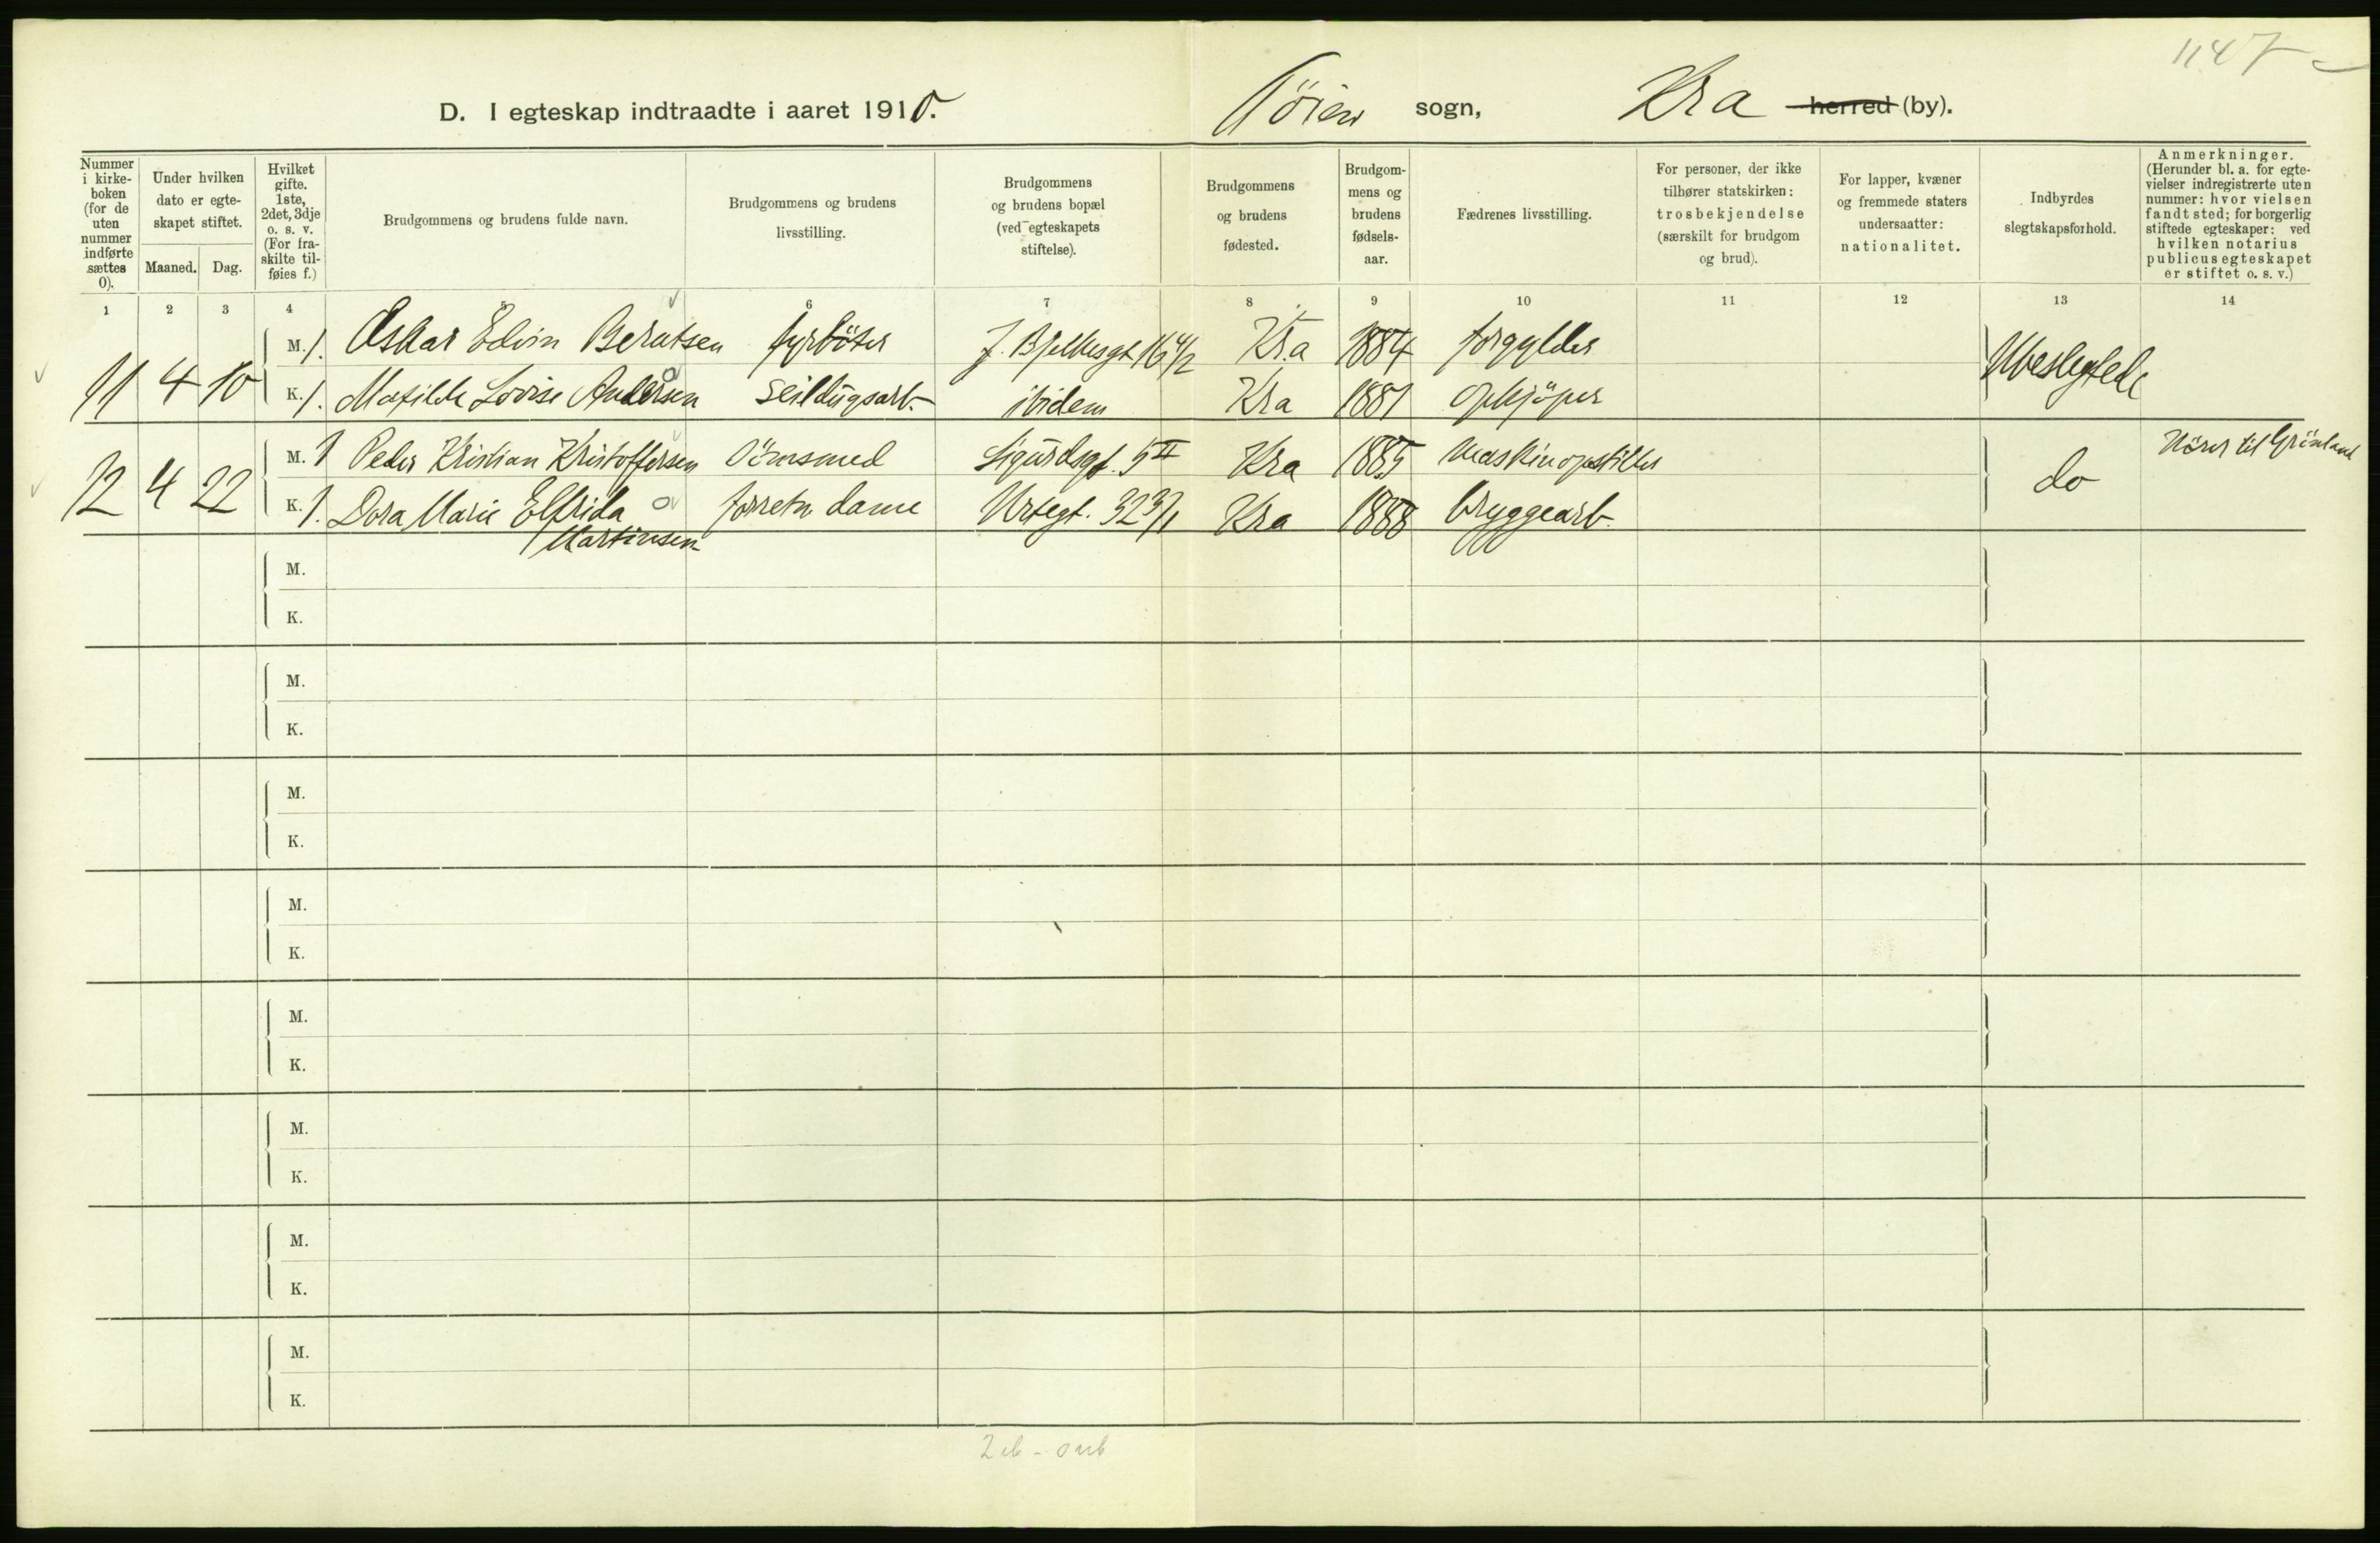 1147
D. I egteskap indtraadte i aaret 1910. Töien sogn, Kra herred (by).
Nummer i kirke-boken (for de uten nummer indførte sættes 0).
Under hvilken dato er egte-skapet stiftet.
Maaned. Dag.
Hvilket gifte. 1ste, 2det, 3dje o. s. v. (For fra-skilte til-føies f.)
Brudgommens og brudens fulde navn.
Brudgommens og brudens livsstilling.
Brudgommens og brudens bopæl (ved egteskapets stiftelse).
Brudgommens og brudens fødested.
Brudgom-mens og brudens fødsels-aar.
Fædrenes livsstilling.
For personer, der ikke tilhører statskirken: trosbekjendelse (særskilt for brudgom og brud).
For lapper, kvæner og fremmede staters undersaatter: nationalitet.
Indbyrdes slegtskapsforhold.
Anmerkninger. (Herunder bl. a. for egte-vielser indregistrerte uten nummer: hvor vielsen fandt sted; for borgerlig stiftede egteskaper: ved hvilken notarius publicus egteskapet er stiftet o. s. v.)
1 2 3 4 5 6 7 8 9 10 11 12 13 14
M. 1. Oskar Edvin Berntsen fyrböter J. Bjelkesgt 16 4/2 Kr.a 1884 forgylder
11 4 10 Ubeslegtede
K. 1. Matilde Lovise Andersen seildugsarb. ibidem Kra 1881 opkjöper
M. 1 Peder Kristian Kristoffersen Sömsmed Sigurdsgt. 5 II Kra 1885 Maskinopstiller Hörer til Grönland
12 4 22 do
K. 1. Dora Marie Elfrida forretn. dame Urtegt. 32 3/1 Kra 1888 bryggearb.
Martinsen
M.
K.
M.
K.
M.
K.
M.
K.
M.
K.
M.
K.
M.
K.
M.
K.